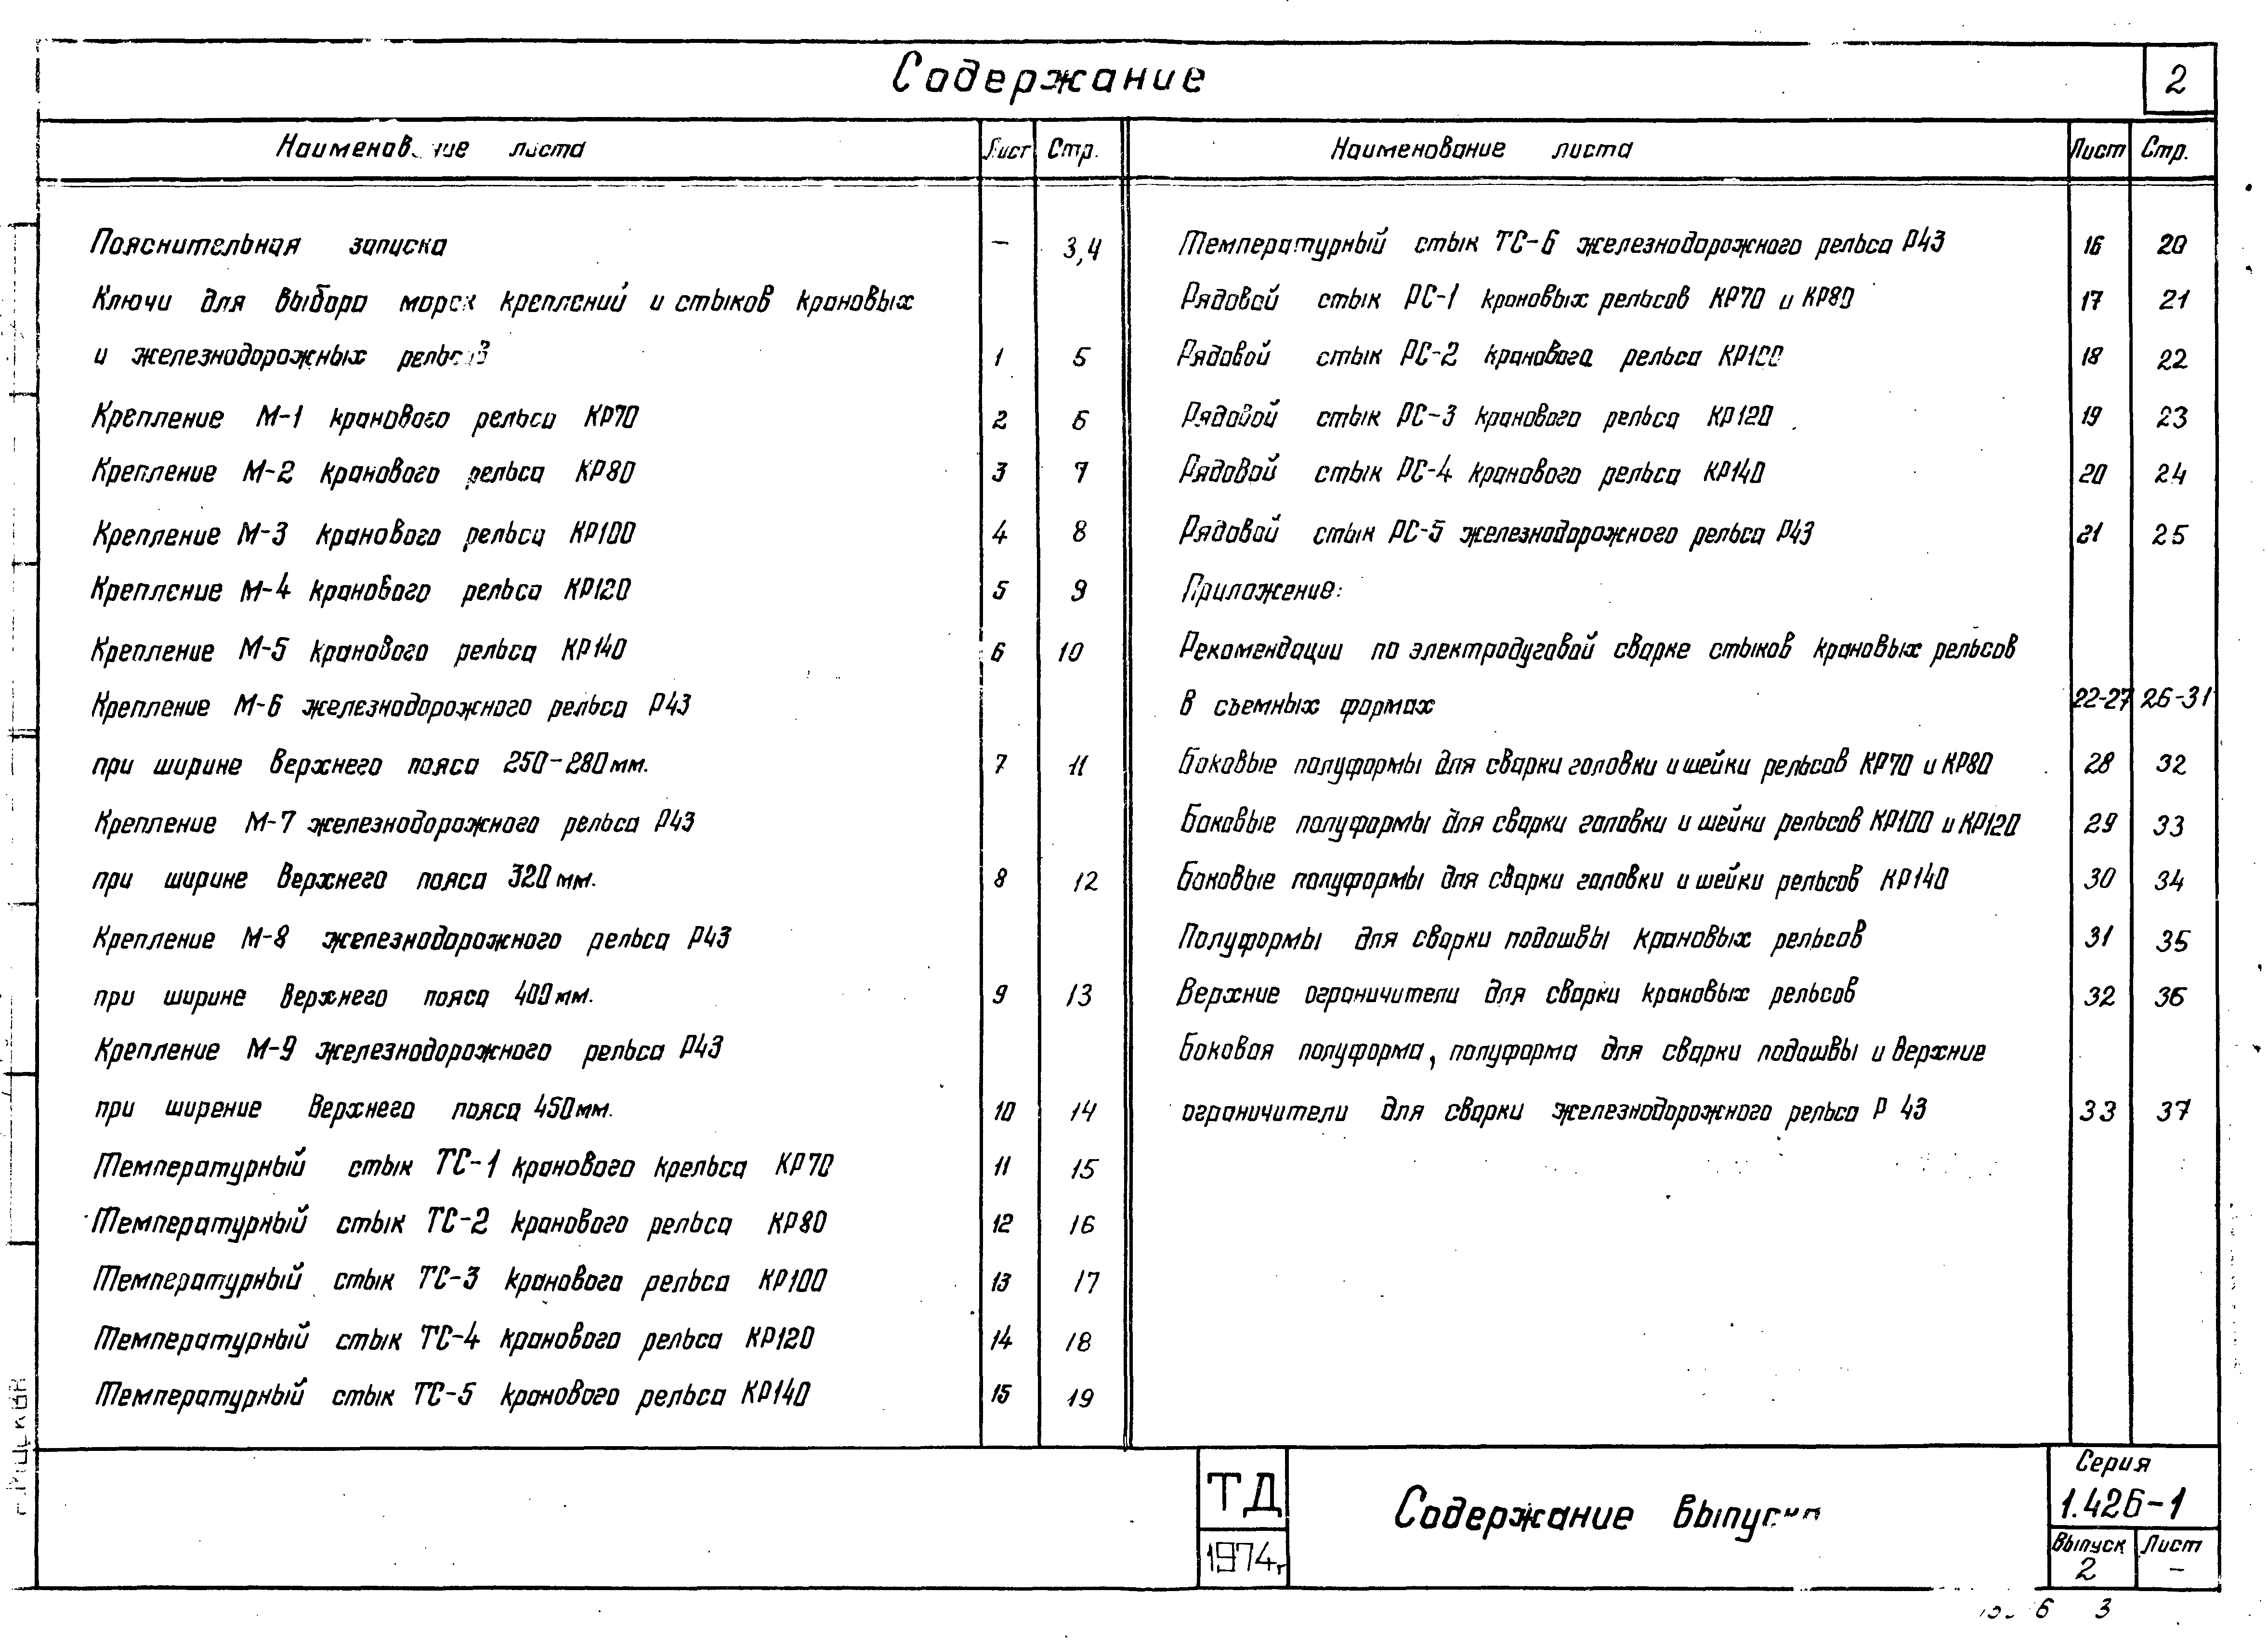 Содержание
2
Наименование листа Лист Стр.
Пояснительная записка — 3,4
Ключи для выбора марок креплений и стыков крановых
и железнодорожных рельсов 1 5
Крепление М-1 кранового рельса КР70 2 6
Крепление М-2 кранового рельса КР80 3 7
Крепление М-3 кранового рельса КР100 4 8
Крепление М-4 кранового рельса КР120 5 9
Крепление М-5 кранового рельса КР140 6 10
Крепление М-6 железнодорожного рельса Р43
при ширине верхнего пояса 250-280мм. 7 11
Крепление М-7 железнодорожного рельса Р43
при ширине верхнего пояса 320мм. 8 12
Крепление М-8 железнодорожного рельса Р43
при ширине верхнего пояса 400мм. 9 13
Крепление М-9 железнодорожного рельса Р43
при ширение верхнего пояса 450мм. 10 14
Температурный стык ТС-1 кранового крельса КР70 11 15
Температурный стык ТС-2 кранового рельса КР80 12 16
Температурный стык ТС-3 кранового рельса КР100 13 17
Температурный стык ТС-4 кранового рельса КР120 14 18
Температурный стык ТС-5 кранового рельса КР140 15 19
Наименование листа Лист Стр.
Температурный стык ТС-6 железнодорожного рельса Р43 16 20
Рядовой стык РС-1 крановых рельсов КР70 и КР80 17 21
Рядовой стык РС-2 кранового рельса КР100 18 22
Рядовой стык РС-3 кранового рельса КР120 19 23
Рядовой стык РС-4 кранового рельса КР140 20 24
Рядовой стык РС-5 железнодорожного рельса Р43 21 25
Приложение:
Рекомендации по электродуговой сварке стыков крановых рельсов
в съемных формах 22-27 26-31
Боковые полуформы для сварки головки и шейки рельсов КР70 и КР80 28 32
Боковые полуформы для сварки головки и шейки рельсов КР100 и КР120 29 33
Боковые полуформы для сварки головки и шейки рельсов КР140 30 34
Полуформы для сварки подошвы крановых рельсов 31 35
Верхние ограничители для сварки крановых рельсов 32 36
Боковая полуформа, полуформа для сварки подошвы и верхние
ограничители для сварки железнодорожного рельса Р 43 33 37
ТД
1974г
Содержание выпуска
Серия
1.426-1
Выпуск Лист
2 —
6 3